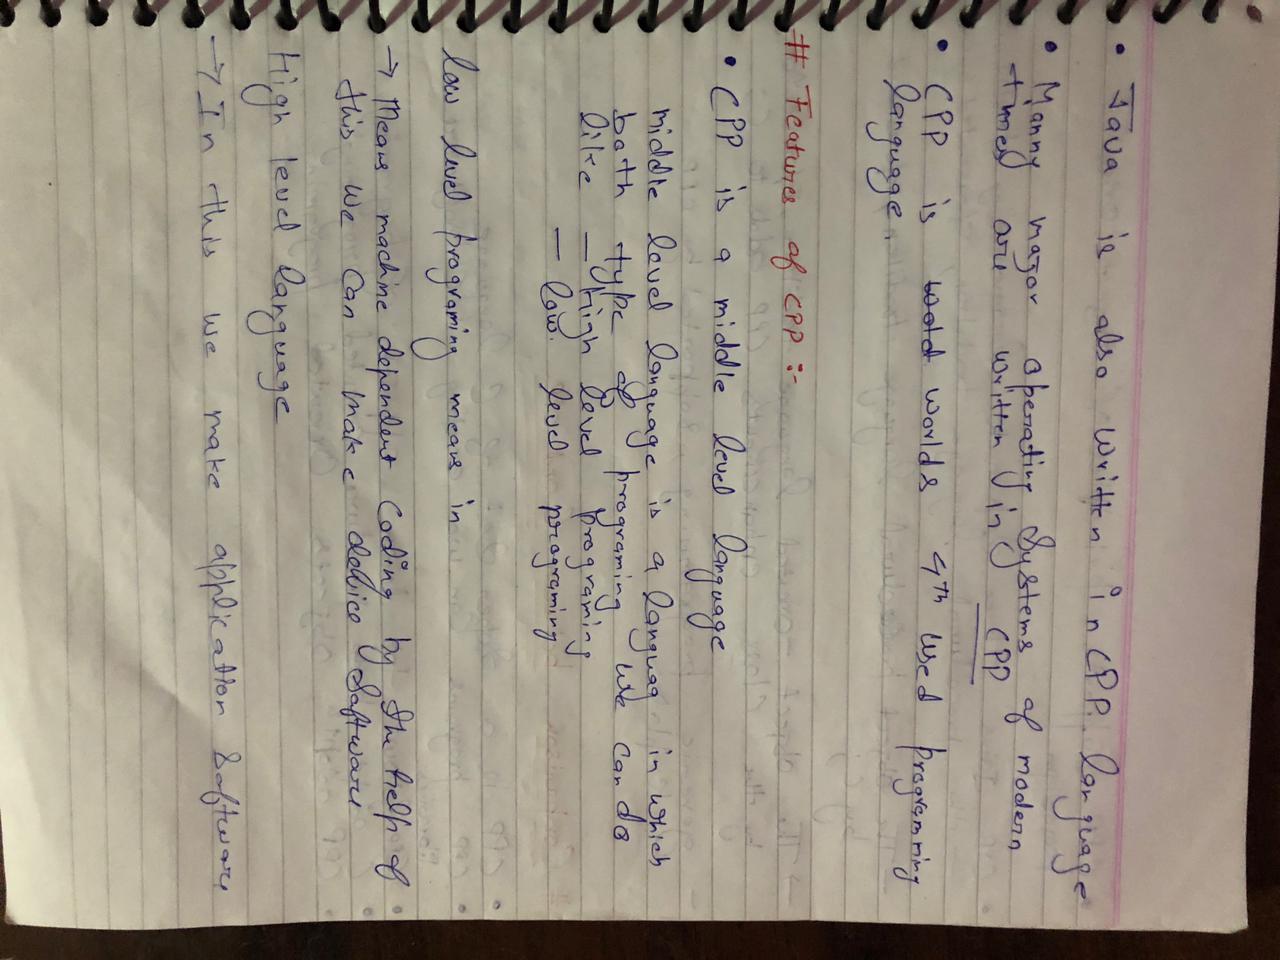 • Java is also written in CPP language
• Manny major operating systems of modern
times are written in CPP
• CPP is worlds 4th used programming
language.
# Features of CPP :-
• CPP is a middle level language
middle level language is a languag in which
both type of programing we can do
like – High level programing
– low level programing
low level programing means in
→ Means machine dependent coding by the help of
this we can make device software
High level language
→ In this we make application software